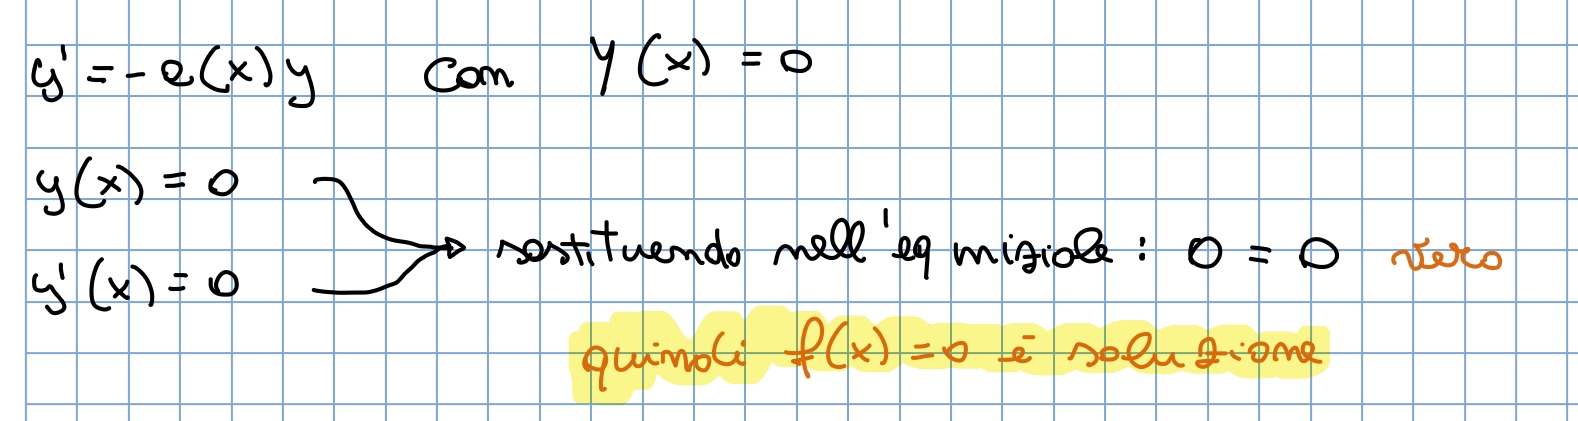 y' = - a(x) y con y(x) = 0
y(x) = 0
y'(x) = 0
sostituendo nell'eq iniziale : 0 = 0 vero
quindi f(x) = 0 è soluzione